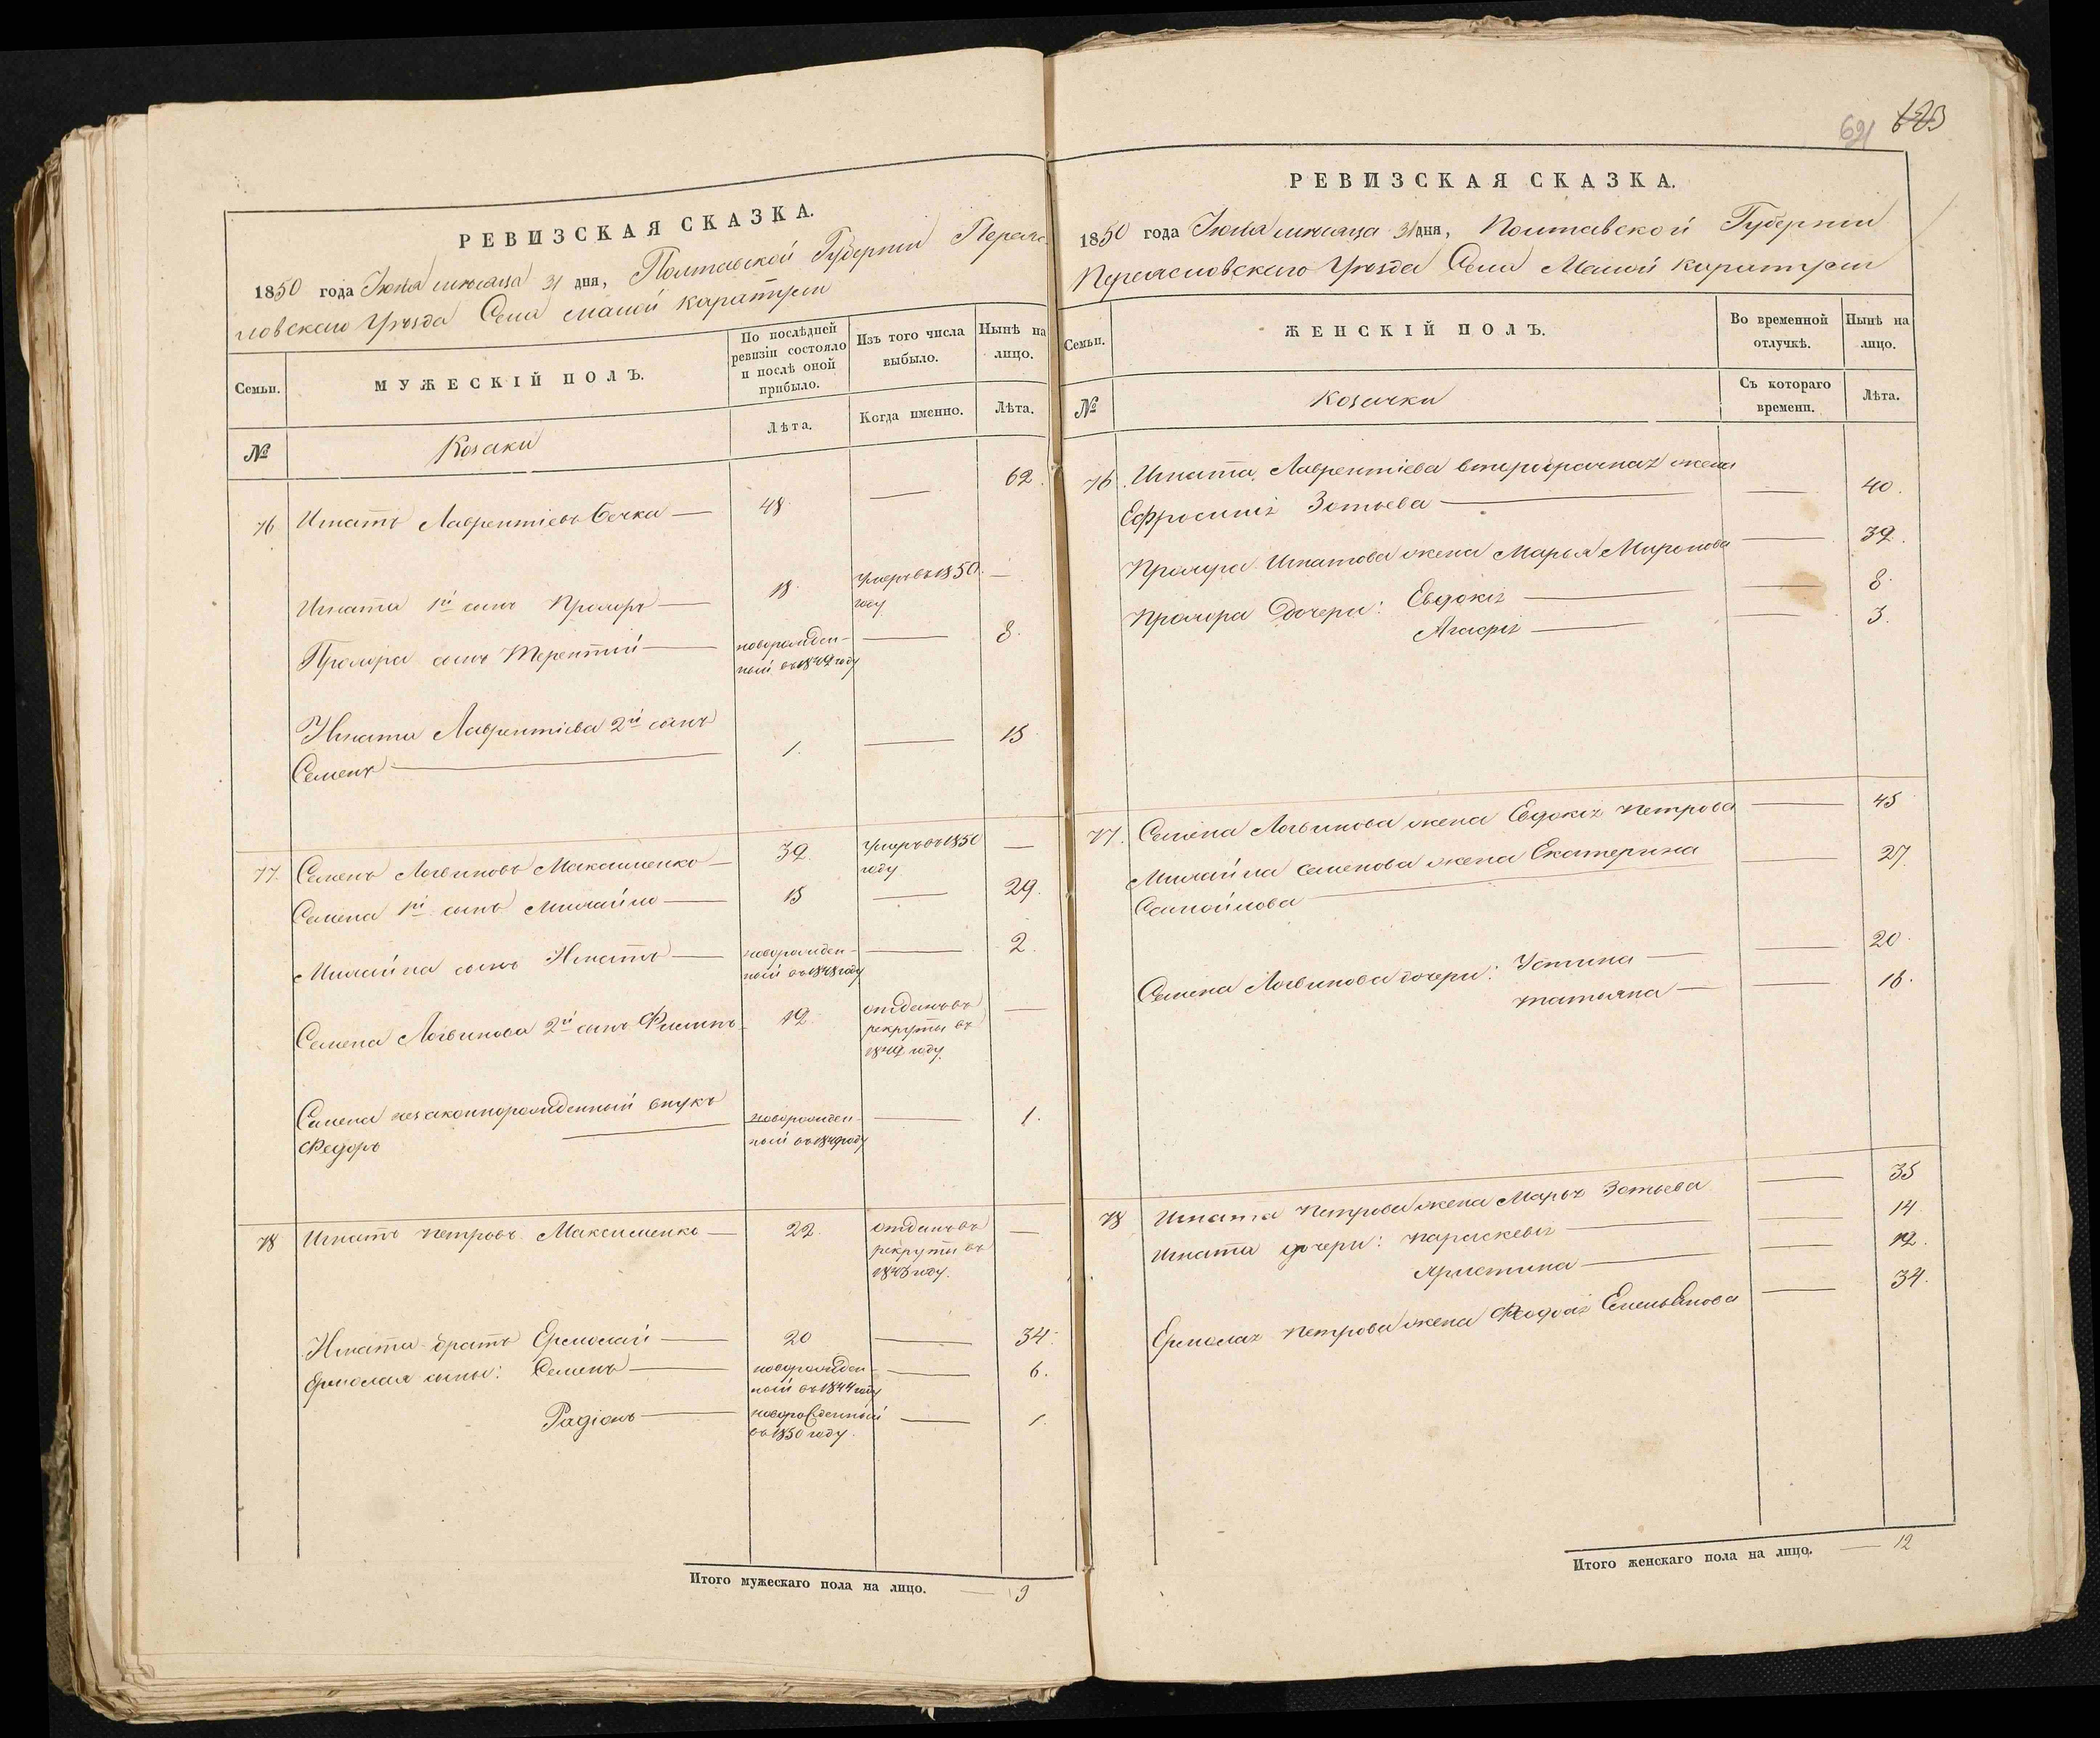 РЕВИЗСКАЯ СКАЗКА.
1850 года Іюля мѣсяца 31 дня, Полтавской Губерніи Переяс
ловскаго Уѣзда Села малой каратули
Семьи.
МУЖЕСКІЙ ПОЛЪ.
По послѣдней
ревизіи состояло
и послѣ оной
прибыло.
Изъ того числа
выбыло.
Нынѣ на
лицо.
№
Козаки
Лѣта.
Когда именно.
Лѣта.
76 Игнатъ Лаврентіевъ Бочка — 48. — 62.
Игната 1й сынъ Прохоръ — 18. Умеръ въ 1850 —
году
Прохора сынъ Терентій — новорожден- — 8.
ный въ 1842 году
Игната Лаврентіева 2й сынъ
Семенъ — 1. — 15
77. Семенъ Логвиновъ Максименко — 39. Умеръ въ 1850 —
году
Семена 1й сынъ Михайло — 13 — 29.
Михайла сынъ Игнатъ — новорожден- — 2.
ный въ 1848 году
Семена Логвинова 2й сынъ Филипъ — 12. отданъ въ —
рекруты въ
1849 году.
Семена незаконнорожденный внукъ
Федоръ — новорожден- — 1.
ный въ 1849 году
78 Игнатъ Петровъ Максименко — 22. отданъ въ —
рекруты въ
1843 году.
Игната братъ Ермолай — 20 — 34.
Ермолая сыны: Семенъ — новорожден- — 6.
ный въ 1844 году
Радіонъ — новорожденный — 1.
въ 1850 году.
Итого мужескаго пола на лицо. — 9
РЕВИЗСКАЯ СКАЗКА.
1850 года Іюля мѣсяца 31 дня, Полтавской Губерніи
Переясловскаго Уѣзда Села Малой каратули
Семьи.
ЖЕНСКІЙ ПОЛЪ.
Во временной
отлучкѣ.
Нынѣ на
лицо.
№
Козачки
Съ котораго
времени.
Лѣта.
76. Игната Лаврентіева второбрачная жена
Ефросинія Зотьева — — 40.
Прохора Игнатова жена Марья Миронова — 39.
Прохора дочери: Евдокія — — 8.
Агафія — — 3.
77. Семена Логвинова жена Евдокія Петрова — 45
Михайла Семенова жена Екатерина — 27.
Самойлова —
Семена Логвинова дочери: Устина — — 20.
Татьяна — — 16.
78 Игната Петрова жена Марья Зотьева — 35
Игната дочери: Параскевія — — 14
Христина — — 12.
Ермолая Петрова жена Феодосія Емельянова — 34.
Итого женскаго пола на лицо. — 12